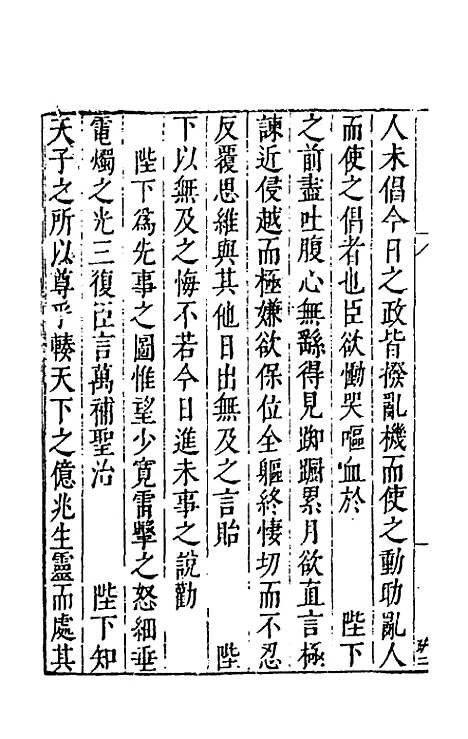 人未倡今日之政皆撥亂機而使之動助亂人
而使之倡者也臣欲慟哭嘔血於 陛下
之前盡吐腹心無繇得見踟躕累月欲直言極
諫近侵越而極嫌欲保位全軀終悽切而不忍
反覆思維與其他日出無及之言貽 陛
下以無及之悔不若今日進未事之說勸
陛下為先事之圖惟望少寛雷擊之怒細垂
電燭之光三復臣言萬補聖治 陛下知
天子之所以尊乎轃天下之億兆生靈而處其